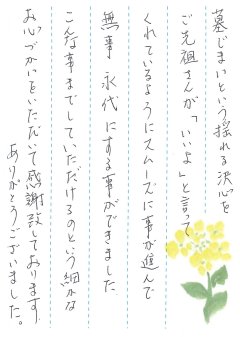 墓じまいという揺れる決心を
ご先祖さんが「いいよ」と言って
くれているようにスムーズに事が進んで
無事 永代にする事ができました
こんな事までしていただけるのという細かな
お心づかいをいただいて感謝致しております
ありがとうございました。